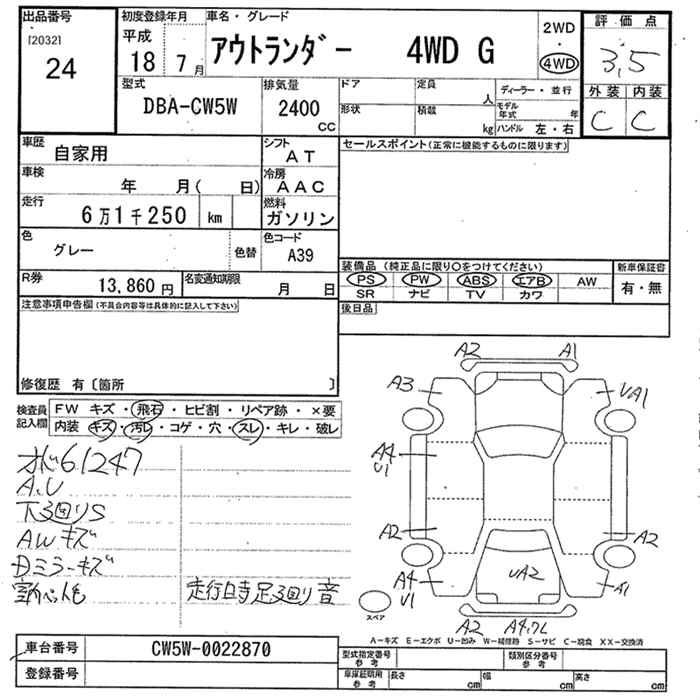 出品番号
[2032]
24
初度登録年月
平成
18 7 月
車名・グレード
アウトランダー 4WD G
2WD
・
4WD
評価点
3.5
外装 内装
C C
型式
DBA-CW5W
排気量
2400
CC
ドア
形状
定員
人
積載
kg
ディーラー・並行
モデル年式 年
ハンドル 左・右
車歴
自家用
シフト
AT
車検
年 月( 日)
冷房
AAC
走行
6万1千250 km
燃料
ガソリン
色
グレー
色替
色コード
A39
R券
13,860 円
名変通知期限
月 日
セールスポイント(正常に機能するものに限ります)
装備品(純正品に限り○をつけてください)
新車保証書
PS PW ABS エアB AW
SR ナビ TV カワ
有・無
後日品
注意事項申告欄(不具合内容等は具体的に記入して下さい)
修復歴 有〔箇所 〕
検査員記入欄
FW キズ・飛石・ヒビ割・リペア跡・×要
内装 キズ・汚レ・コゲ・穴・スレ・キレ・破レ
61247
A.U
下廻りS
AWキズ
ミラーキズ
走行時足廻り音
A2 A1
A3 UA1
A4
U1
A2 A2
A4
U1
UA2
A1
A2
スペア
A-キズ E-エクボ U-凹み W-補修跡 S-サビ C-腐食 XX-交換済
車台番号
CW5W-0022870
登録番号
型式指定番号
参考
類別区分番号
参考
車庫証明用
参考
長さ cm
幅 cm
高さ cm